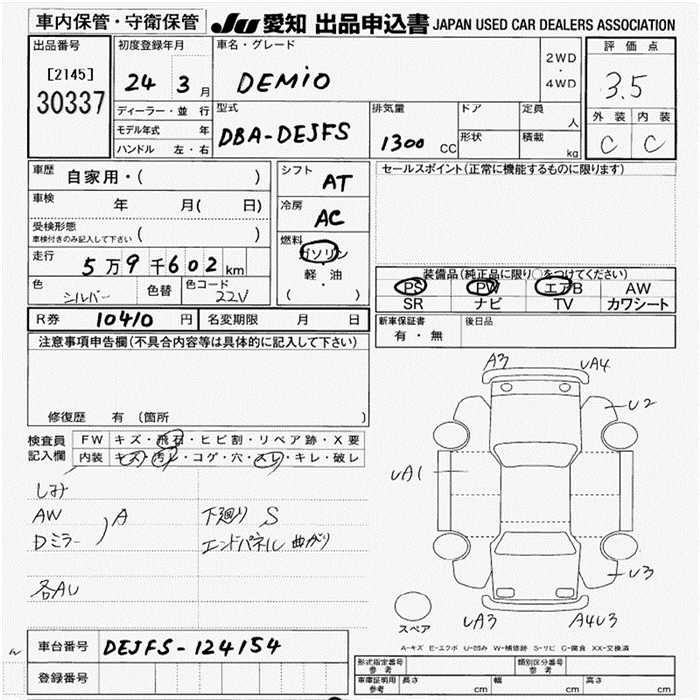 車内保管・守衛保管
JU 愛知 出品申込書 JAPAN USED CAR DEALERS ASSOCIATION
出品番号
[2145]
30337
初度登録年月
24 3月
ディーラー・並 行
モデル年式 年
ハンドル 左・右
車名・グレード
DEMIO
2WD
・
4WD
型式
DBA-DEJFS
排気量
1300 CC
ドア
形状
定員
人
積載
kg
評価点
3.5
外装 内装
C C
車歴 自家用・( )
車検 年 月( 日)
受検形態
車検付きのみ記入して下さい ( )
走行 5万9千602km
色 シルバー 色替 色コード 22V
シフト AT
冷房 AC
燃料
ガソリン
軽・油
( )
セールスポイント(正常に機能するものに限ります)
装備品(純正品に限り○をつけてください)
PS PW エアB AW
SR ナビ TV カワシート
R券 10410 円 名変期限 月 日
新車保証書
有・無
後日品
注意事項申告欄(不具合内容等は具体的に記入して下さい)
修復歴 有 (箇所 )
検査員
記入欄
FW キズ・飛石・ヒビ割・リペア跡・X要
内装 キズ・汚レ・コゲ・穴・スレ・キレ・破レ
しみ
AW
Dミラー
A
各AU
下廻り S
エンドパネル 曲がり
A3 UA4
U2
UA1
U3
UA3 A4U3
スペア
A-キズ E-エクボ U-凹み W-補修跡 S-サビ C-腐食 XX-交換済
車台番号 DEJFS-124154
登録番号
形式指定番号
参考
類別区分番号
参考
車庫証明用
参考
長さ cm 幅 cm 高さ cm